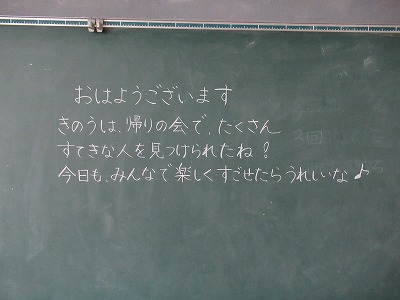 おはようございます
きのうは、帰りの会で、たくさん
すてきな人を見つけられたね!
今日も、みんなで楽しくすごせたらうれしいな♪
3回